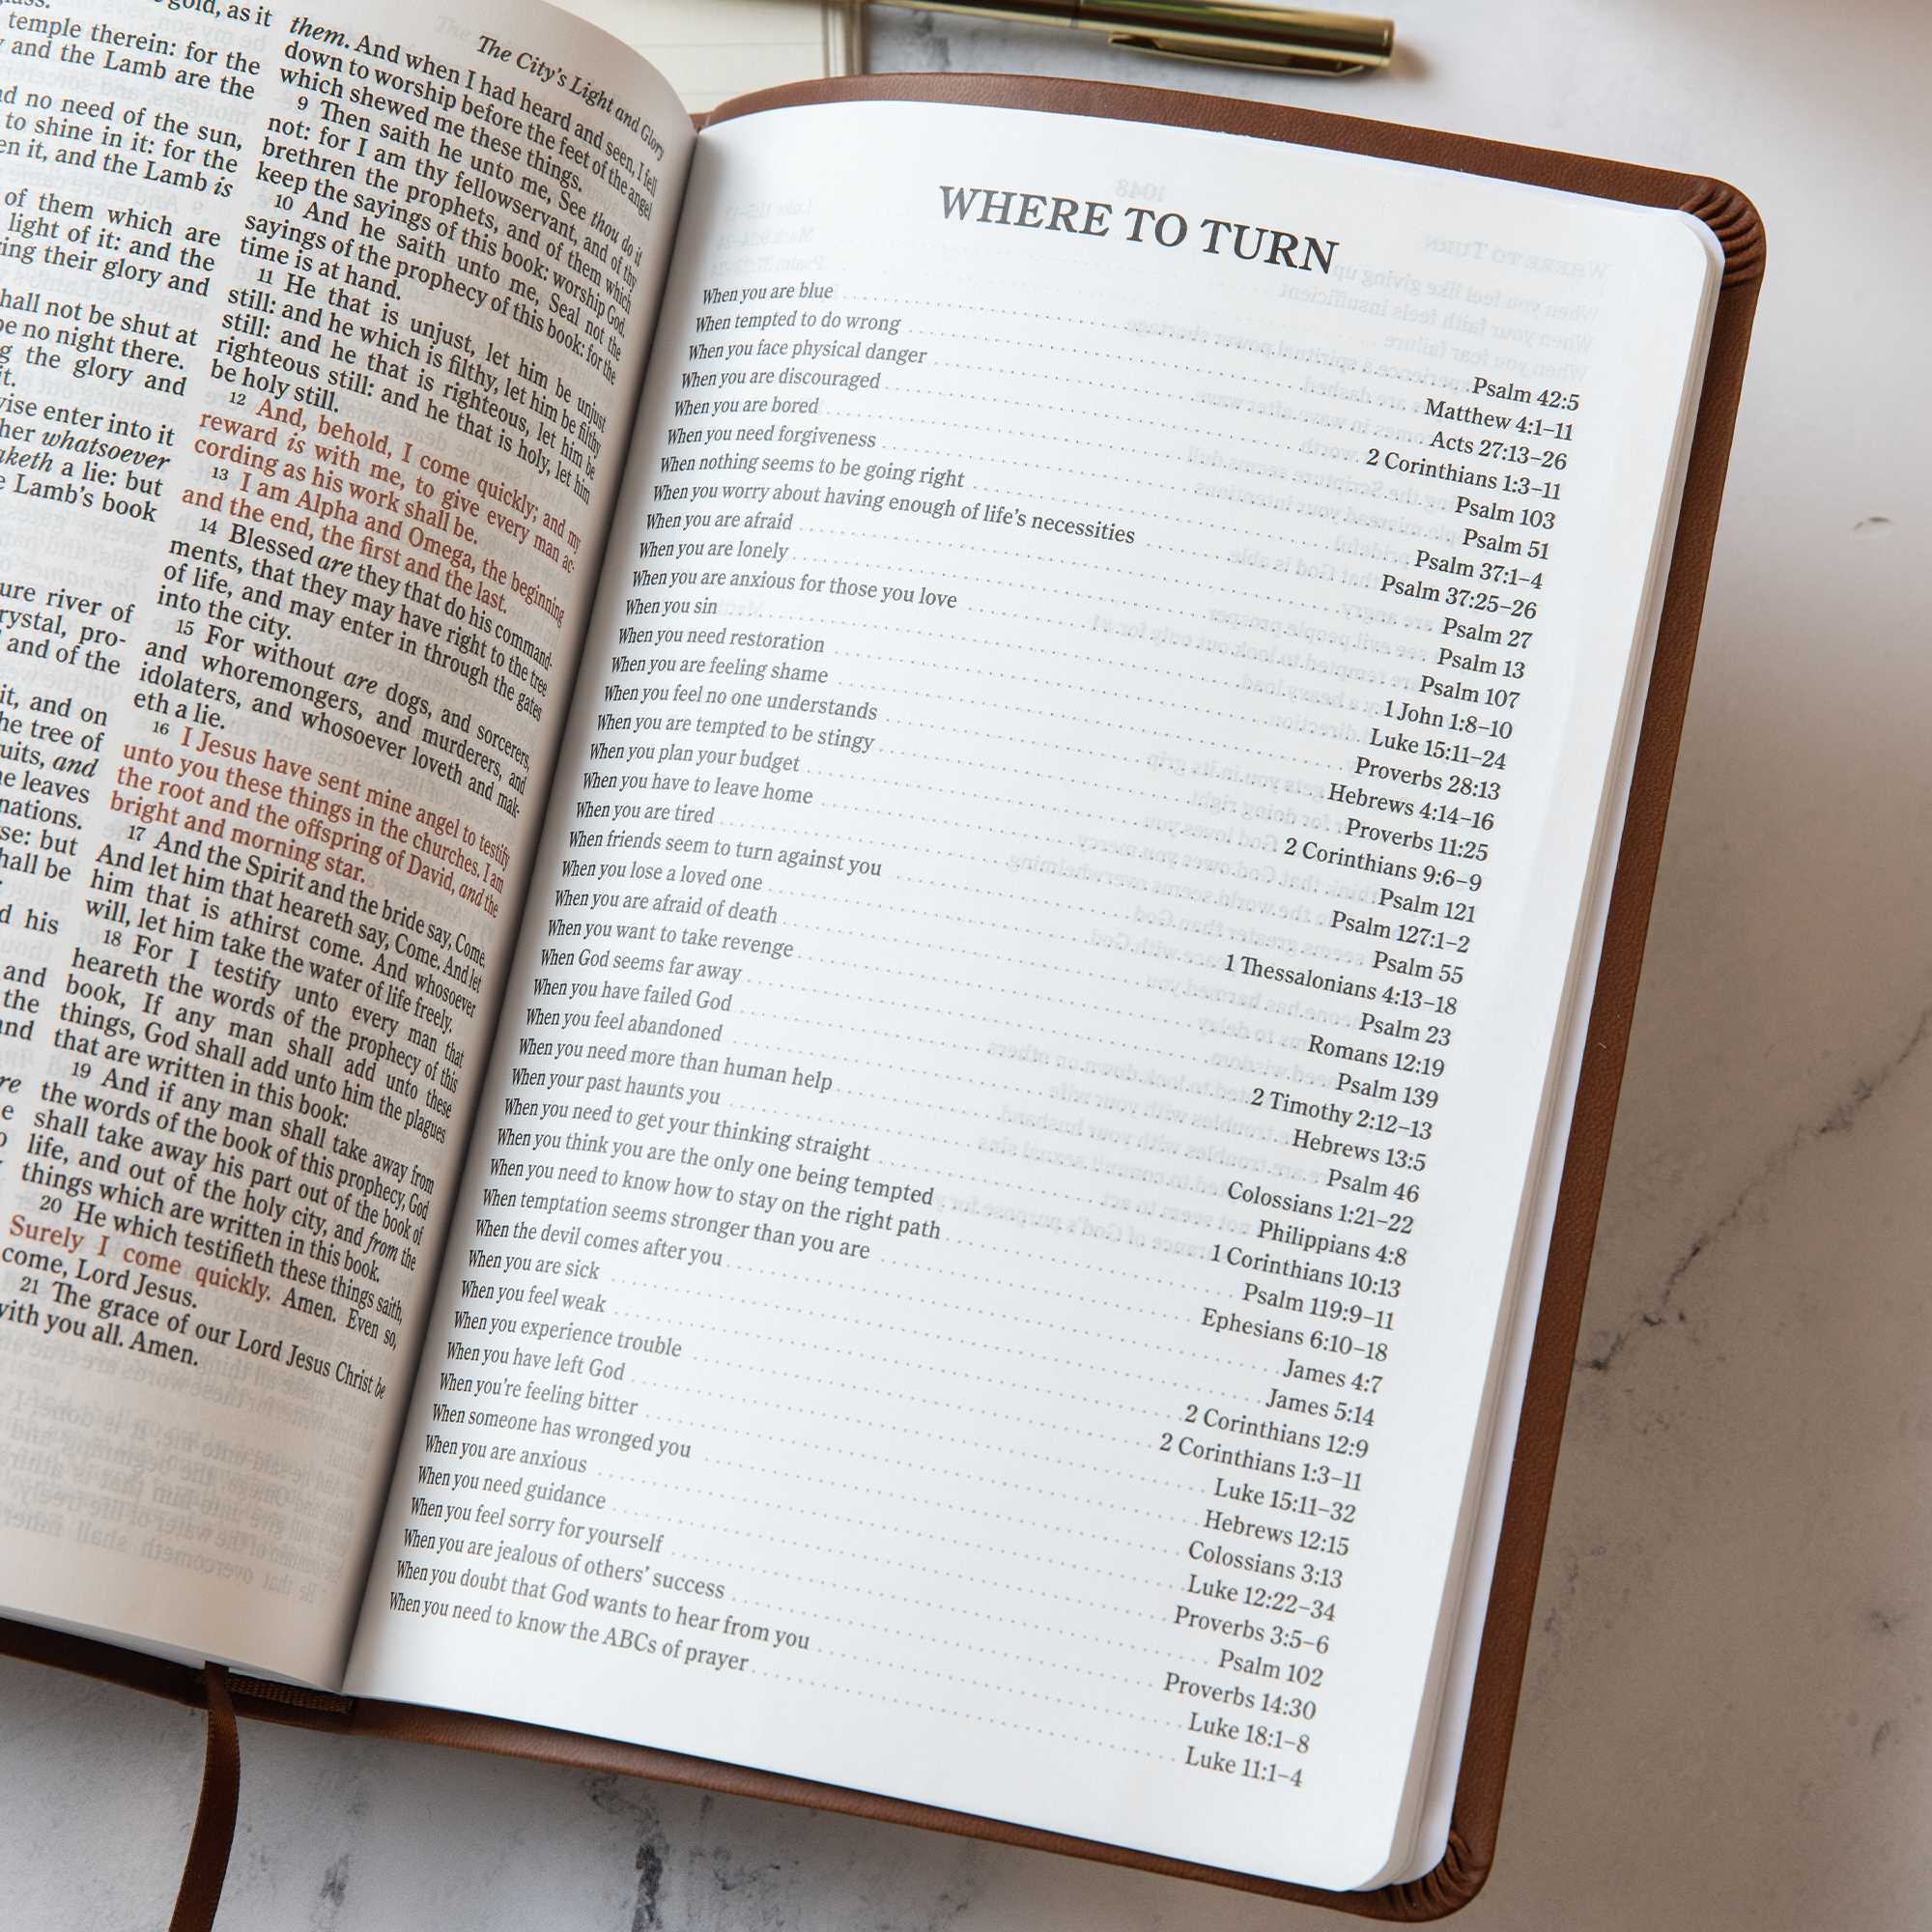 gold, as it
temple therein: for the
and the Lamb are the
no need of the sun,
to shine in it: for the
it, and the Lamb is
of them which are
light of it: and the
their glory and
shall not be shut at
be no night there.
the glory and
it.
enter into it
whatsoever
a lie: but
Lamb's book
river of
pro-
and of the
it, and on
the tree of
and
leaves
nations.
but
shall be
his
and
the
and
The City's Light and Glory
them. And when I had heard and seen, I fell
down to worship before the feet of the angel
which shewed me these things.
9 Then saith he unto me, See thou do it
not: for I am thy fellowservant, and of thy
brethren the prophets, and of them which
keep the sayings of this book: worship God.
10 And he saith unto me, Seal not the
sayings of the prophecy of this book: for the
time is at hand.
11 He that is unjust, let him be unjust
still: and he which is filthy, let him be filthy
still: and he that is righteous, let him be
righteous still: and he that is holy, let him
be holy still.
12 And, behold, I come quickly; and my
reward is with me, to give every man ac-
cording as his work shall be.
13 I am Alpha and Omega, the beginning
and the end, the first and the last.
14 Blessed are they that do his command-
ments, that they may have right to the tree
of life, and may enter in through the gates
into the city.
15 For without are dogs, and sorcerers,
and whoremongers, and murderers, and
idolaters, and whosoever loveth and mak-
eth a lie.
16 I Jesus have sent mine angel to testify
unto you these things in the churches. I am
the root and the offspring of David, and the
bright and morning star.
17 And the Spirit and the bride say, Come.
And let him that heareth say, Come. And let
him that is athirst come. And whosoever
will, let him take the water of life freely.
18 For I testify unto every man that
heareth the words of the prophecy of this
book, If any man shall add unto these
things, God shall add unto him the plagues
that are written in this book:
19 And if any man shall take away from
the words of the book of this prophecy, God
shall take away his part out of the book of
life, and out of the holy city, and from the
things which are written in this book.
20 He which testifieth these things saith,
Surely I come quickly. Amen. Even so,
come, Lord Jesus.
21 The grace of our Lord Jesus Christ be
with you all. Amen.
WHERE TO TURN
When you are blue Psalm 42:5
When tempted to do wrong Matthew 4:1–11
When you face physical danger Acts 27:13–26
When you are discouraged 2 Corinthians 1:3–11
When you are bored Psalm 103
When you need forgiveness Psalm 51
When nothing seems to be going right Psalm 37:1–4
When you worry about having enough of life's necessities Psalm 37:25–26
When you are afraid Psalm 27
When you are lonely Psalm 13
When you are anxious for those you love Psalm 107
When you sin 1 John 1:8–10
When you need restoration Luke 15:11–24
When you are feeling shame Proverbs 28:13
When you feel no one understands Hebrews 4:14–16
When you are tempted to be stingy Proverbs 11:25
When you plan your budget 2 Corinthians 9:6–9
When you have to leave home Psalm 121
When you are tired Psalm 127:1–2
When friends seem to turn against you Psalm 55
When you lose a loved one 1 Thessalonians 4:13–18
When you are afraid of death Psalm 23
When you want to take revenge Romans 12:19
When God seems far away Psalm 139
When you have failed God 2 Timothy 2:12–13
When you feel abandoned Hebrews 13:5
When you need more than human help Psalm 46
When your past haunts you Colossians 1:21–22
When you need to get your thinking straight Philippians 4:8
When you think you are the only one being tempted 1 Corinthians 10:13
When you need to know how to stay on the right path Psalm 119:9–11
When temptation seems stronger than you are Ephesians 6:10–18
When the devil comes after you James 4:7
When you are sick James 5:14
When you feel weak 2 Corinthians 12:9
When you experience trouble 2 Corinthians 1:3–11
When you have left God Luke 15:11–32
When you're feeling bitter Hebrews 12:15
When someone has wronged you Colossians 3:13
When you are anxious Luke 12:22–34
When you need guidance Proverbs 3:5–6
When you feel sorry for yourself Psalm 102
When you are jealous of others' success Proverbs 14:30
When you doubt that God wants to hear from you Luke 18:1–8
When you need to know the ABCs of prayer Luke 11:1–4